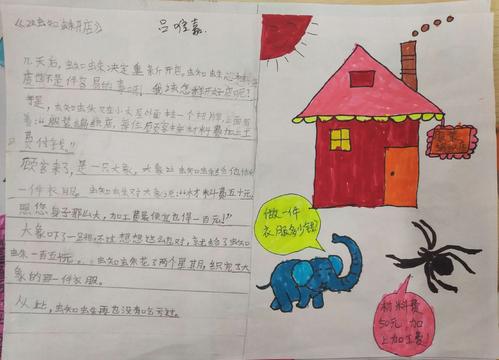 《蜘蛛开店》
几天后，蜘蛛决定重新开店，蜘蛛心想：
店也不是件容易的事啊！我该怎样开好店呢？
于是，蜘蛛又在小木屋外面挂一个招牌，上面写
着：服装编织店，每位顾客
费付钱。”
顾客来了，是一只大象，大象让蜘蛛给他织
一件衣服。蜘蛛对大象说：“材料费五十元，
照您身子那么大，加工费最便宜也得一百元。”
大象吓了一跳，不过想想这也对，就给了蜘
蛛一百五十元。蜘蛛花了两个星期，织完了大
象的那一件衣服。
从此，蜘蛛再也没有亏过。
做一件
衣服多少钱？
材料费
50元 加
上加工费！